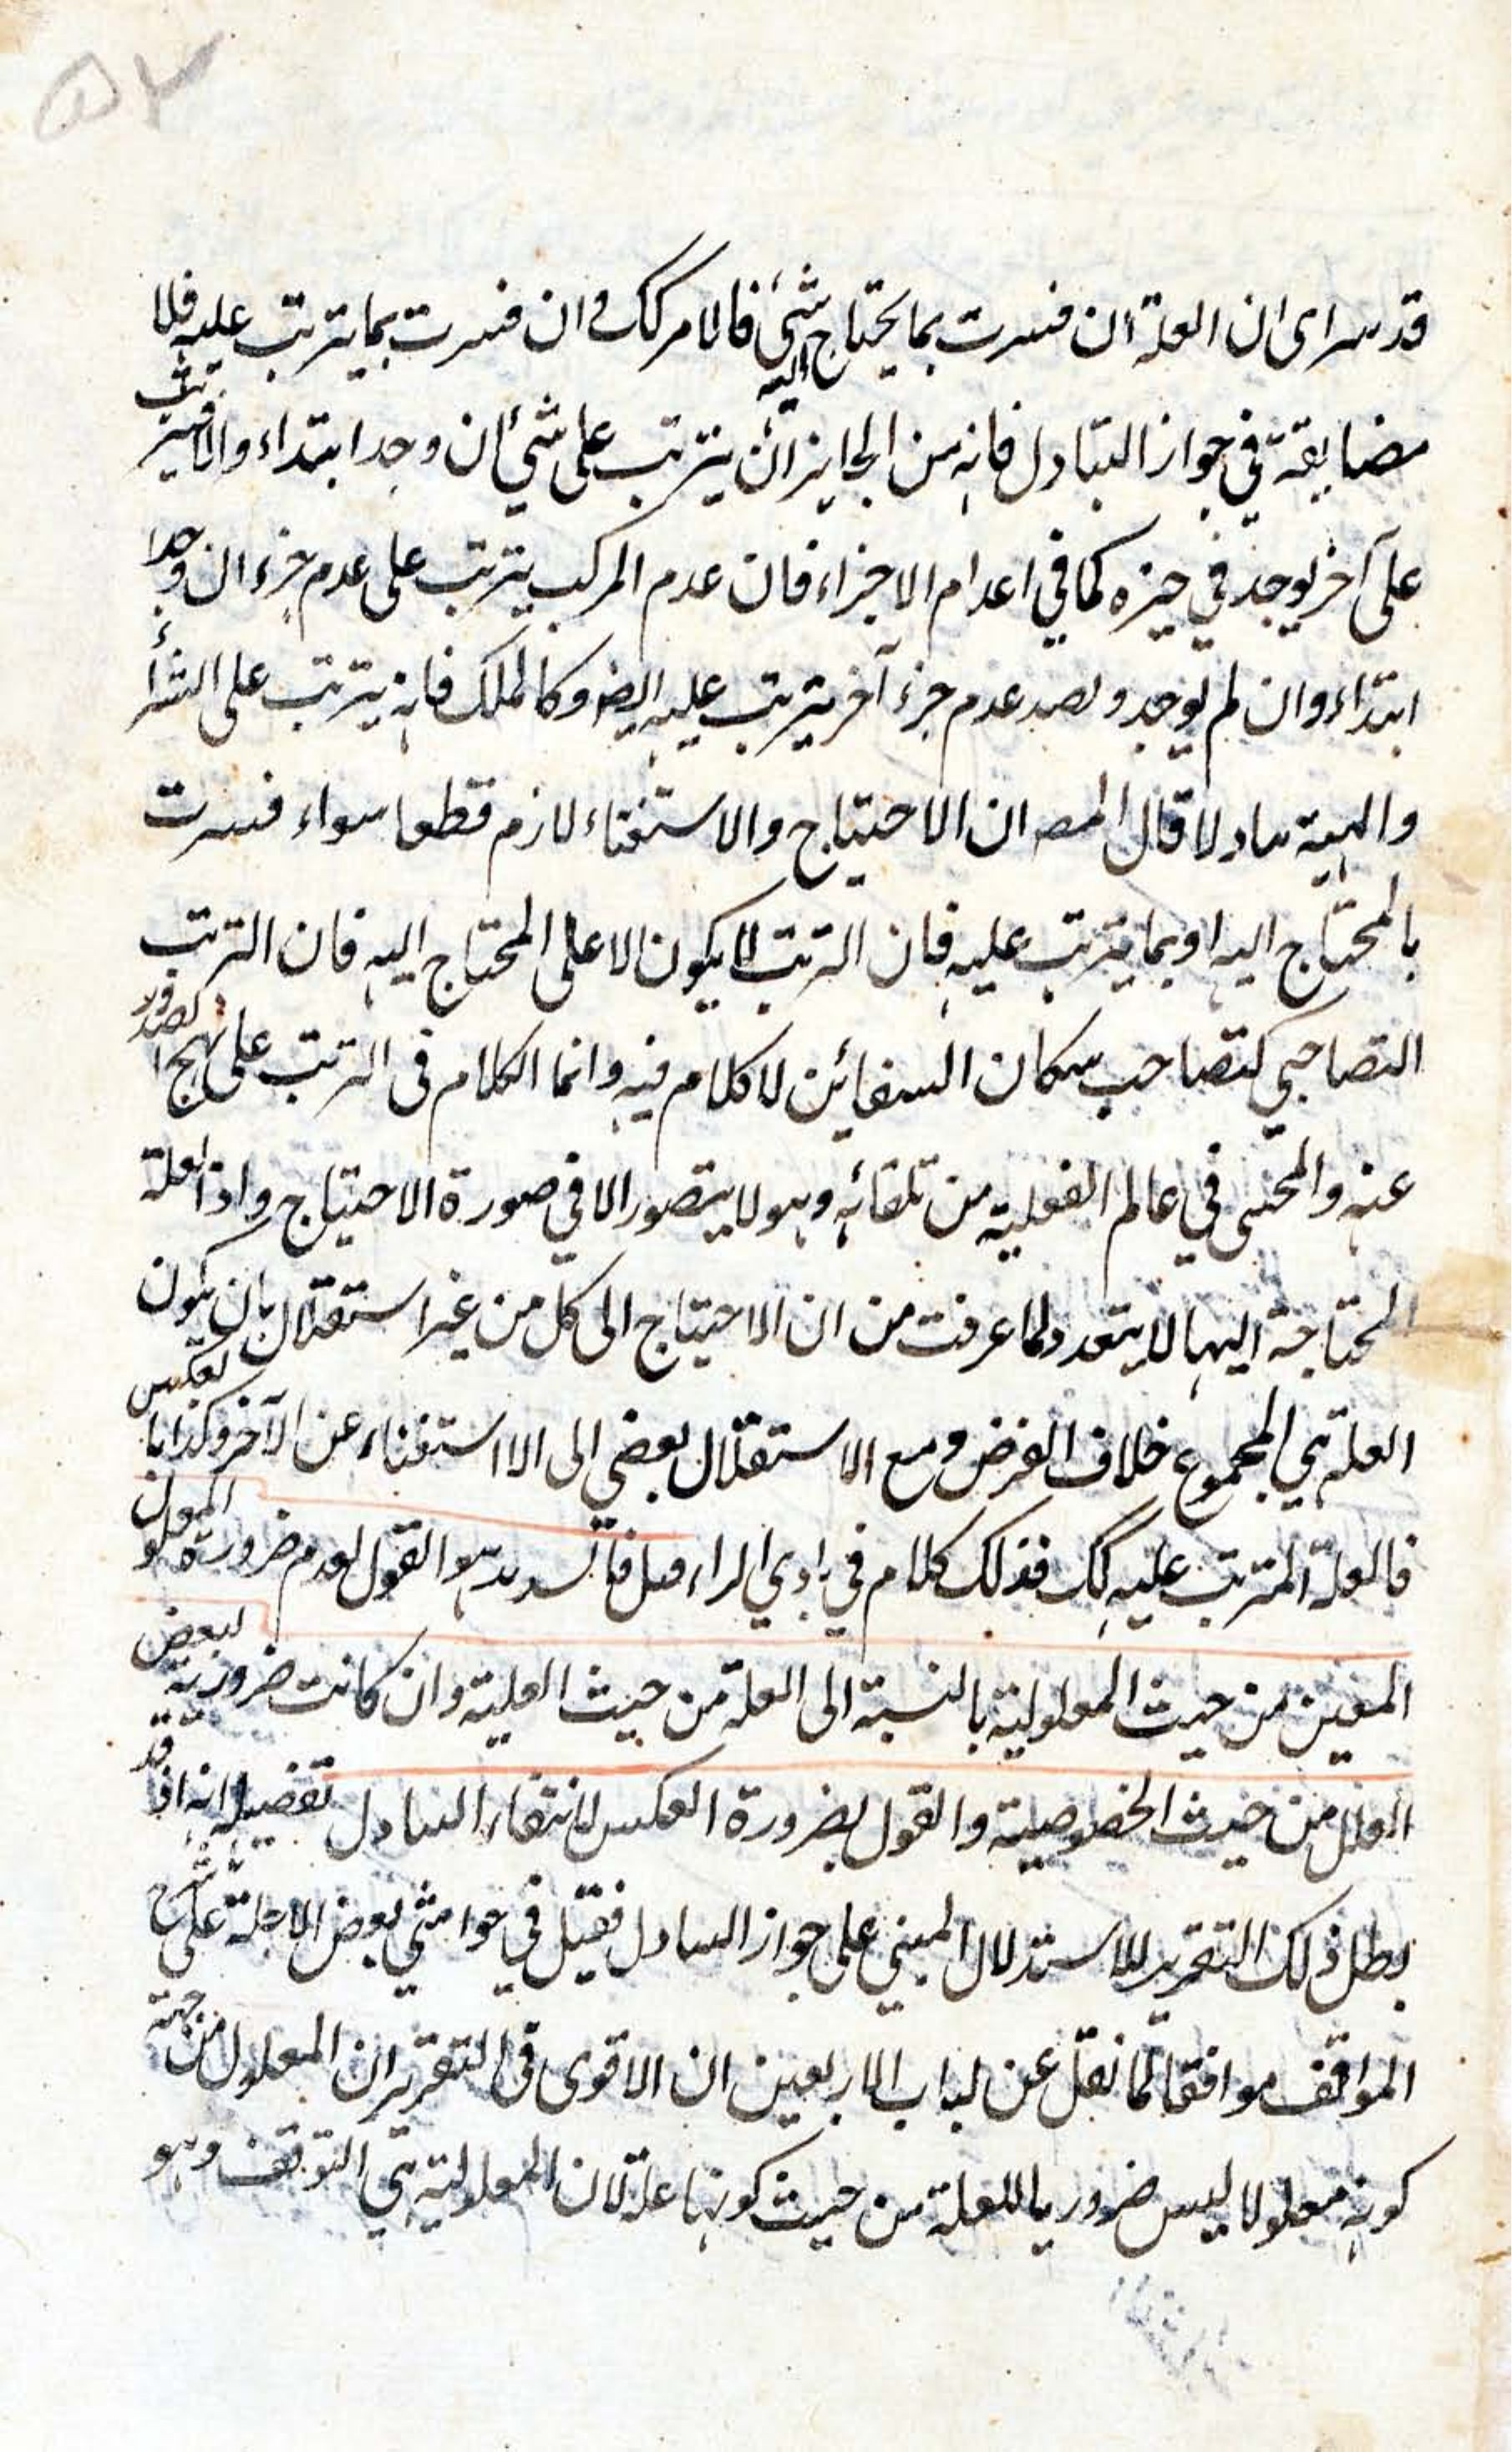 ٥٢
قد سرای ان العلة ان فسرت بما يحتاج اليه شئ فالامر كك و ان فسرت بما يترتب عليه فلا
مضايقة في جواز التبادل فانه من الجايز ان يترتب على شئ ان وجد ابتداء والا فيترتب
على آخر يوجد في حيزه كما في اعدام الاجزاء فان عدم المركب يترتب على عدم جزء ان وجد
ابتداء وان لم يوجد و عدم جزء آخر يترتب عليه ايضو وكالملك فانه يترتب على الشراء
والهبة تبادلا قال المصه ان الاحتياج والاستغناء لازم قطعا سواء فسرت
بالمحتاج اليه او بما يترتب عليه فان الترتب لا يكون الا على المحتاج اليه فان الترتب
التصاحبي كتصاحب سكان السفائن لا كلام فيه وانما الكلام في الترتب على نهج الصدور
عنه و في عالم الفعلية من تلقائه وهو لا يتصور الا في صورة الاحتياج واذا العلة
المحتاجة اليها لا يتعدد لما عرفت من ان الاحتياج الى كل من غير استقلال بان يكون
العلة هي المجموع خلاف الفرض ومع الاستقلال يفضي الى الاستغناء عن الآخر وكذا بالعكس
فالعلة المترتب عليه كك فذلك كلام في بادي الراء هو القول لعدم ضرورة المعلول
المعين من حيث المعلولية بالنسبة الى العلة من حيث العلية وان كانت ضرورية لبعض
العلل من حيث الخصوصية والقول بضرورة العكس لانتفاء التبادل تفصيله انه اذا قد
بطل ذلك التقرير للاستدلال المبني على جواز التبادل فقيل في حواشي بعض الاجلة على شرح
المواقف موافقا لما نقل عن لباب الاربعين ان الاقوى في التقرير ان المعلول من جهة
كونه معلولا ليس ضروريا للعلة من حيث كونها علة لان المعلولية هي التوقف وهو